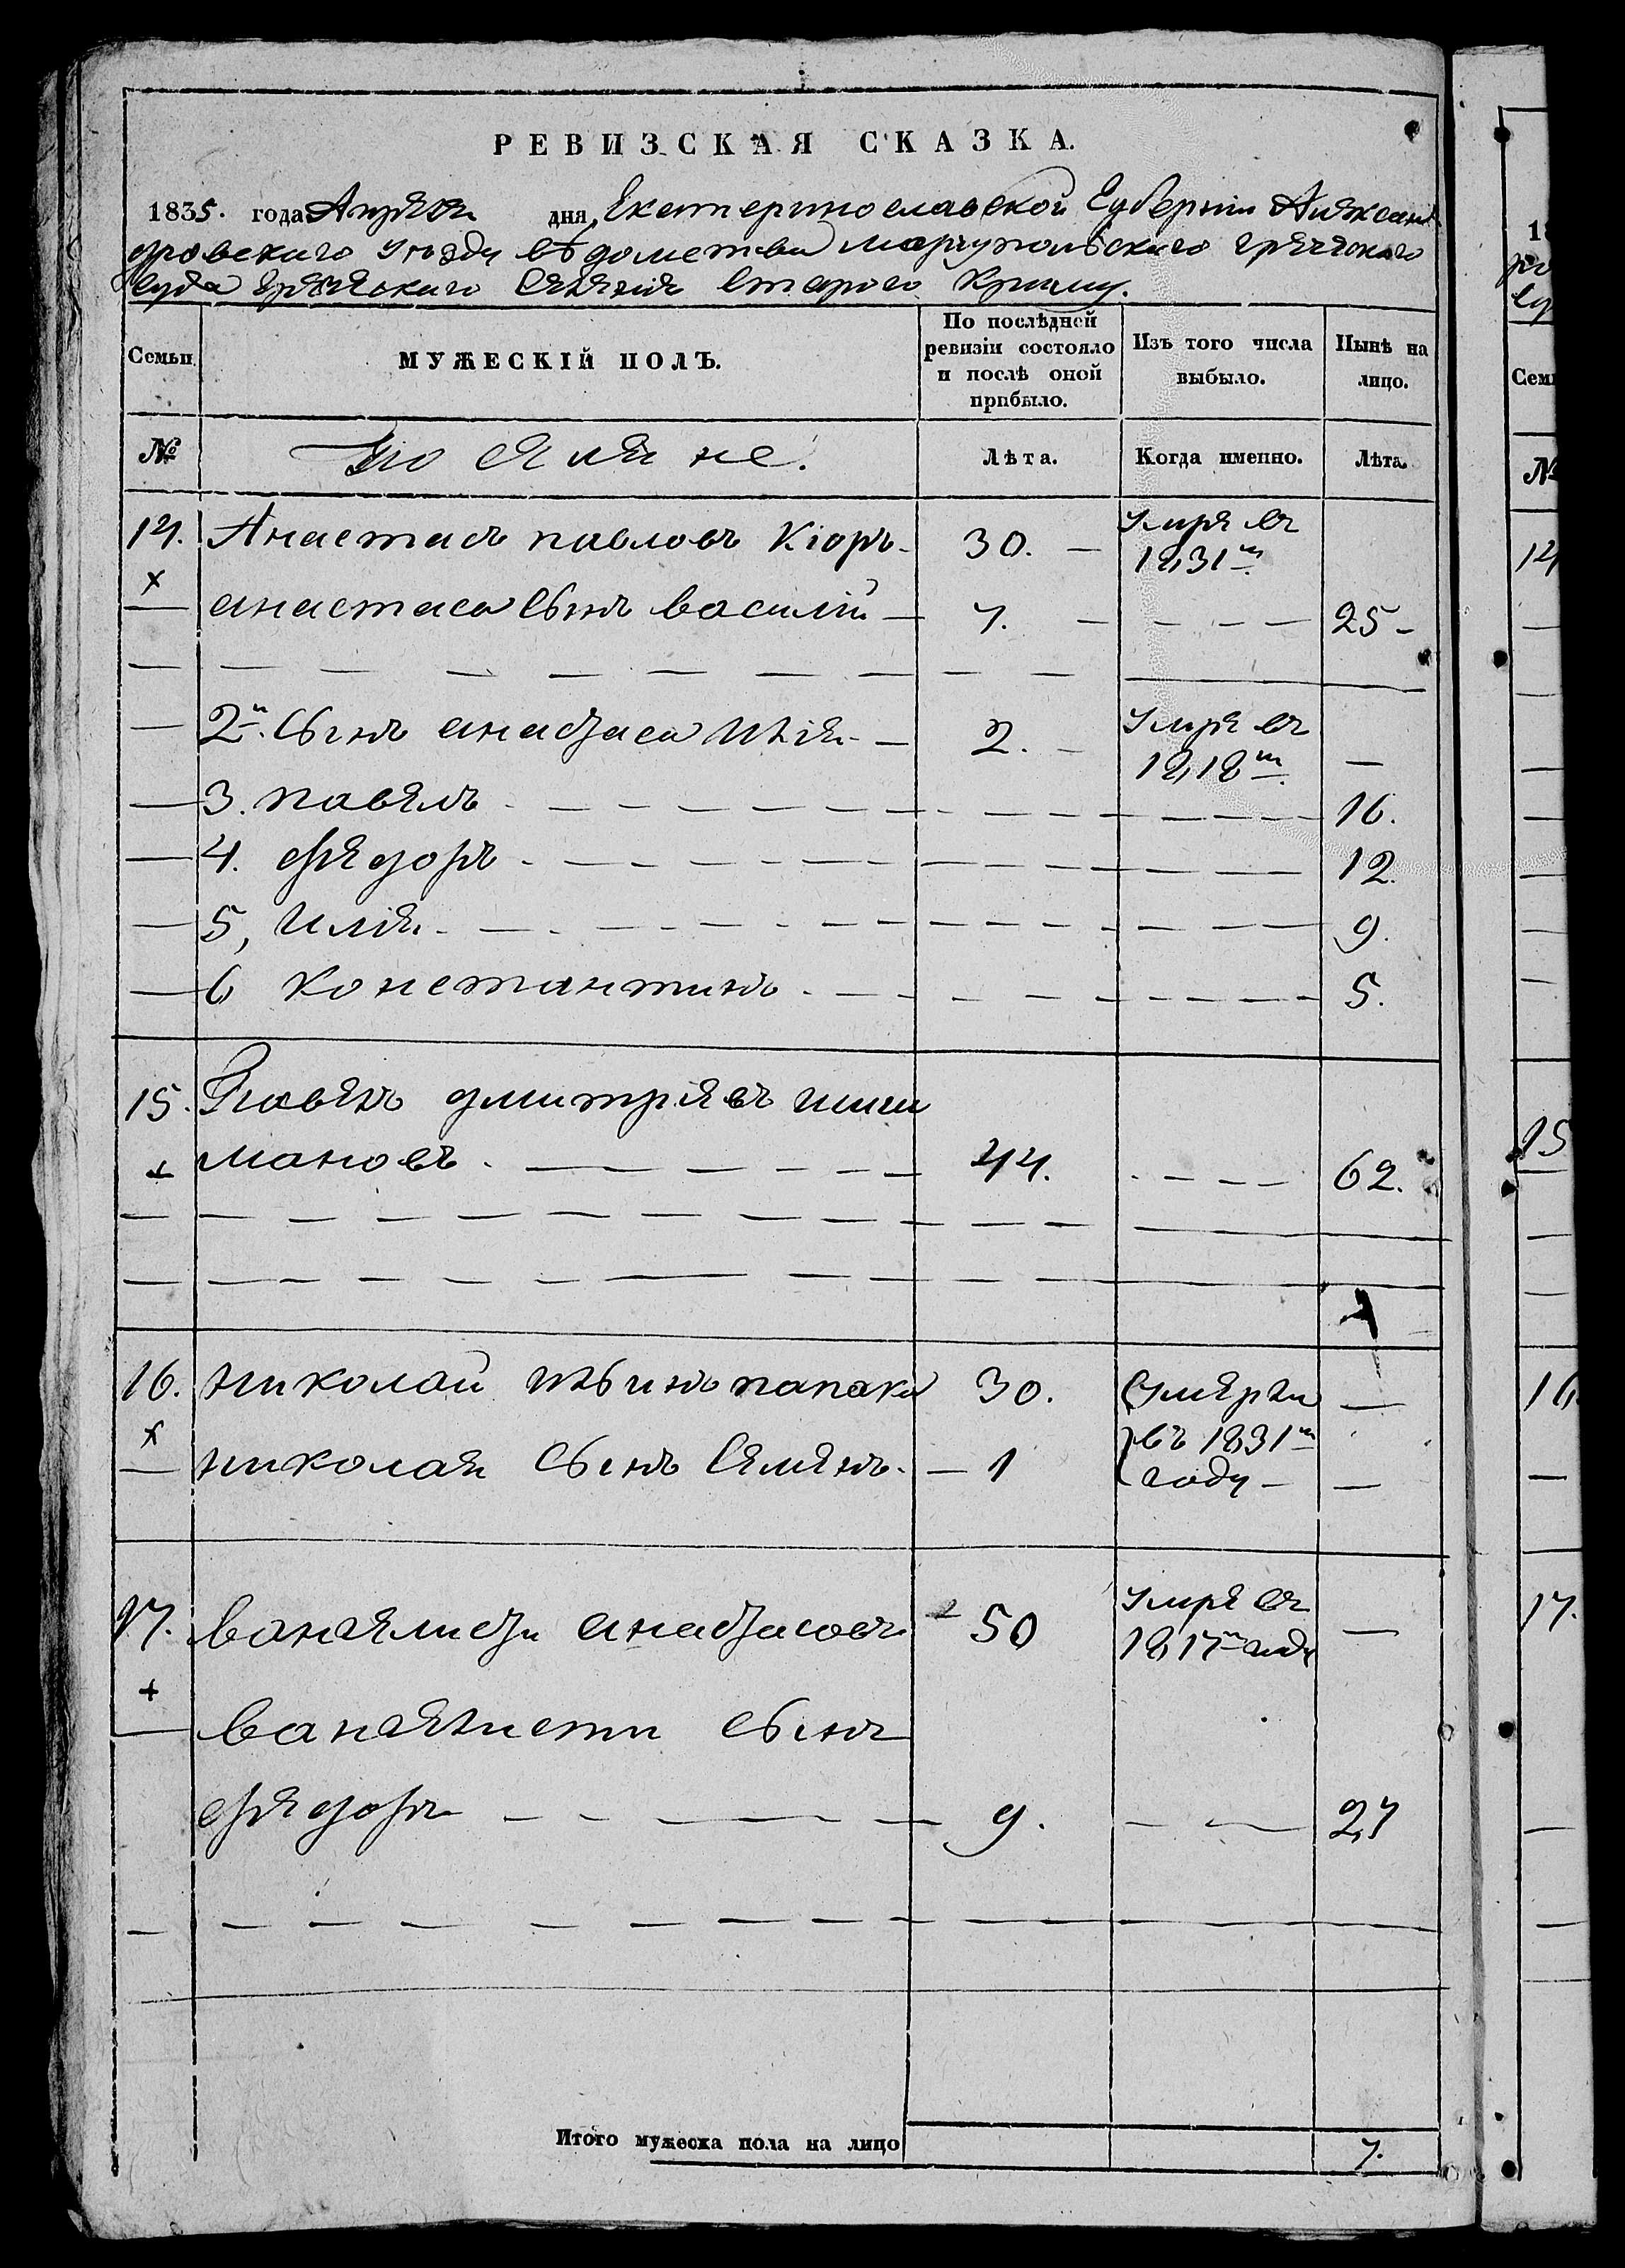 РЕВИЗСКАЯ СКАЗКА.
1835. года Апреля дня, Екатеринославской Губернiи Алексан
дровского уезда вѣдомства марiупольского греческого
Суда греческого Селенiя Старого Крыму.
Семьи
МУЖЕСКIЙ ПОЛЪ.
По послѣдней ревизiи состояло и послѣ оной прибыло.
Изъ того числа выбыло.
Нынѣ на лицо.
№
поселяне.
Лѣта.
Когда именно.
Лѣта.
14. Анастасъ павловъ Кiоръ 30. умре въ 1831м
анастаса сынъ василiй 7. 25
2й сынъ анастаса илiя 2. умре въ 1818м
3. павелъ 16.
4. федоръ 12.
5, илiя 9.
6 константинъ 5.
15. Павелъ дмитрiевъ шиш
мановъ 44. 62.
16. николай ильинъ папака 30. умерли
въ 1831м
николая сынъ семенъ 1 году
17. вангелисти анастасовъ 50 умре въ
1817м году
вангелисти сынъ
федоръ 9. 27
Итого мужеска пола на лицо 7.
18
Семь
№
14
15
16
17.